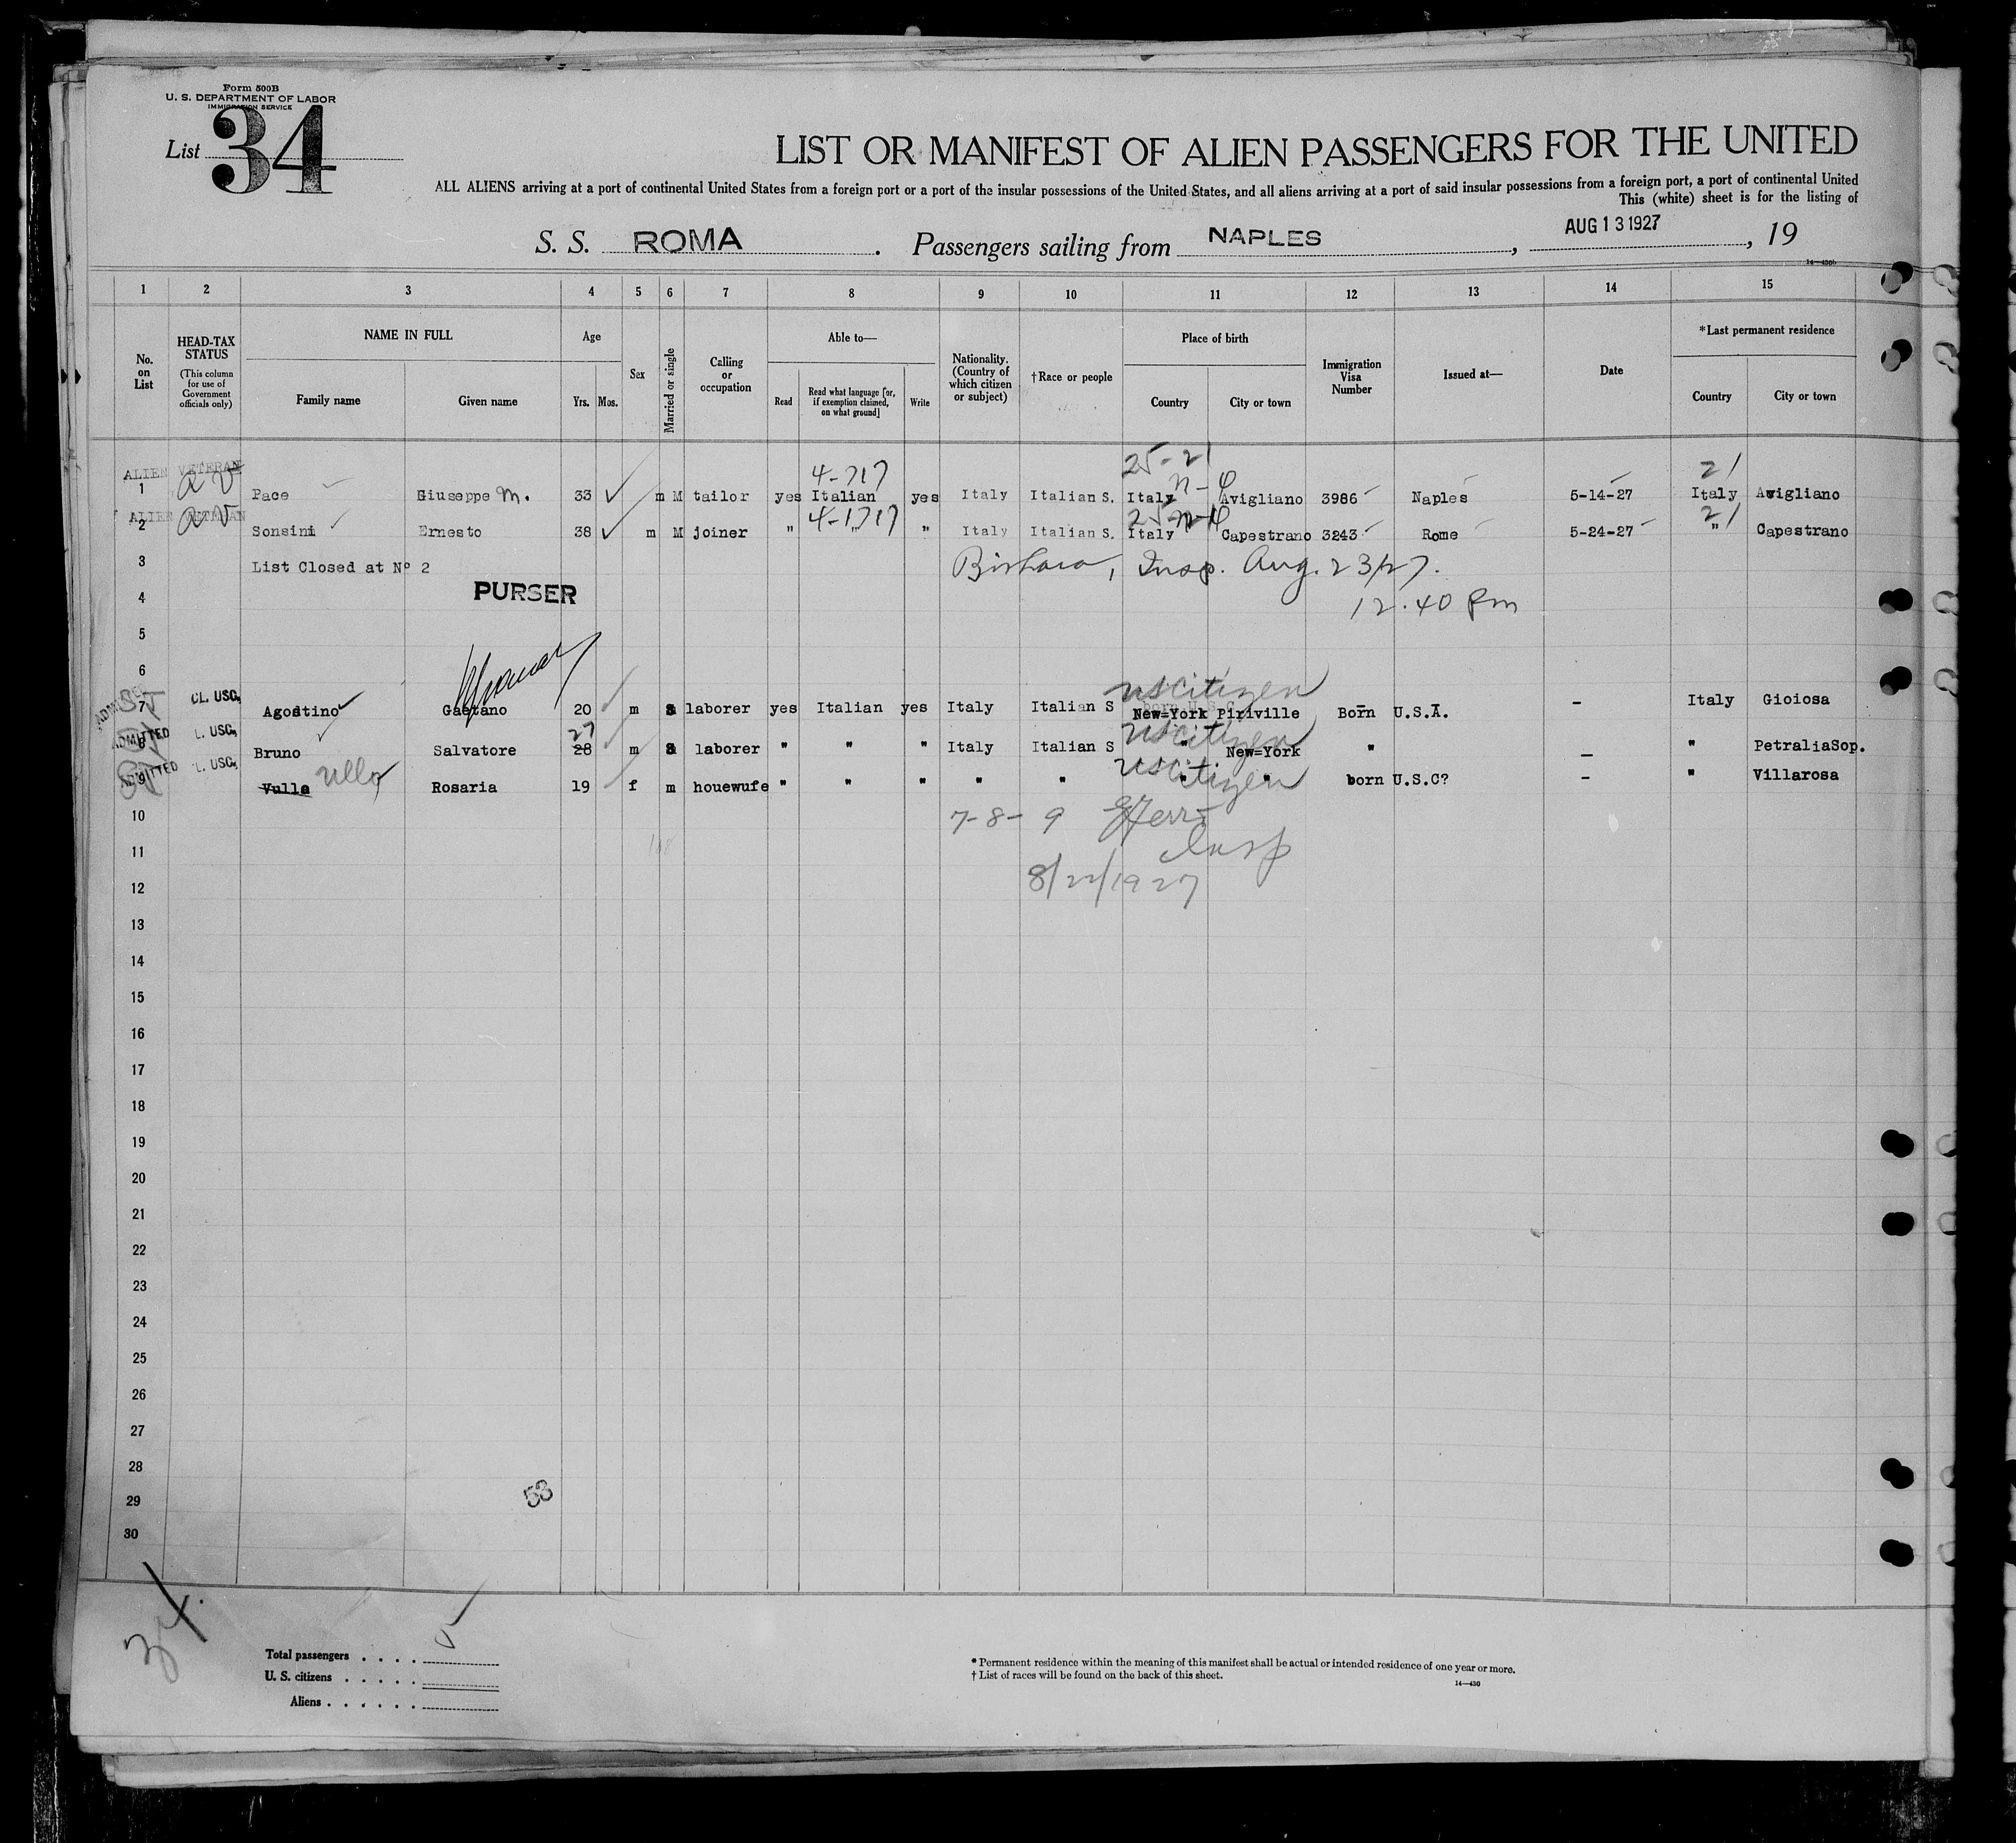 Form 500B
U. S. DEPARTMENT OF LABOR
IMMIGRATION SERVICE
List 34
LIST OR MANIFEST OF ALIEN PASSENGERS FOR THE UNITED
ALL ALIENS arriving at a port of continental United States from a foreign port or a port of the insular possessions of the United States, and all aliens arriving at a port of said insular possessions from a foreign port, a port of continental United
This (white) sheet is for the listing of
S. S. ROMA. Passengers sailing from NAPLES, AUG 13 1927, 19
14—430b
1 2 3 4 5 6 7 8 9 10 11 12 13 14 15
No. on List
HEAD-TAX STATUS (This column for use of Government officials only)
NAME IN FULL Family name Given name
Age Yrs. Mos.
Sex
Married or single
Calling or occupation
Able to— Read Read what language [or, if exemption claimed, on what ground] Write
Nationality. (Country of which citizen or subject)
†Race or people
Place of birth Country City or town
Immigration Visa Number
Issued at—
Date
*Last permanent residence Country City or town
25-21
ALIEN VETERAN 4-717 n-4 21
1 av Pace Giuseppe M. 33 m M tailor yes Italian yes Italy Italian S. Italy Avigliano 3986 Naples 5-14-27 Italy Avigliano
ALIEN VETERAN 4-1717 25-n-4 21
2 av Sonsini Ernesto 38 m M joiner " " " Italy Italian S. Italy Capestrano 3243 Rome 5-24-27 " Capestrano
3 List Closed at Nº 2 Insp. Aug. 23/27.
4 PURSER 12.40 pm
5
6
US citizen
7 CL. USC. Agostino Gaetano 20 m S laborer yes Italian yes Italy Italian S New=York Piriville Born U.S.A. - Italy Gioiosa
27 US citizen
8 ADMITTED L. USC. Bruno Salvatore 28 m S laborer " " " Italy Italian S " New=York " - " PetraliaSop.
US citizen
9 ADMITTED L. USC. Vulla Ullo Rosaria 19 f m houewufe " " " " " " " born U.S.C? - " Villarosa
10 7-8-9
11 Insp
12 8/22/1927
13
14
15
16
17
18
19
20
21
22
23
24
25
26
27
28
29 53
30
34
Total passengers . . . . 5
U. S. citizens . . . . .
Aliens . . . . . .
* Permanent residence within the meaning of this manifest shall be actual or intended residence of one year or more.
† List of races will be found on the back of this sheet.
14—430